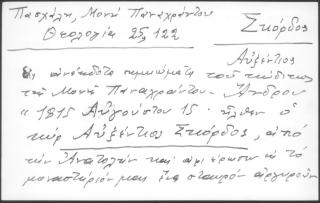 Πασχάλη, Μονή Παναχράντου
Θεολογία 25, 122
Σκόρδος
Αὐξέντιος
Ἐξ ἀνεκδότου σημειώματος τοῦ κώδικος
τῆς Μονῆς Παναχράντου - Ἄνδρου
" 1815 Αὐγούστου 15 · ἦλθεν ὁ
κύρ Αὐξέντιος Σκόρδος, ἀπό
τήν Ἀνατολήν καί ἀφιέρωσεν εἰς τό
μοναστήριόν μας ἕνα σταυρόν ἀργυροῦν